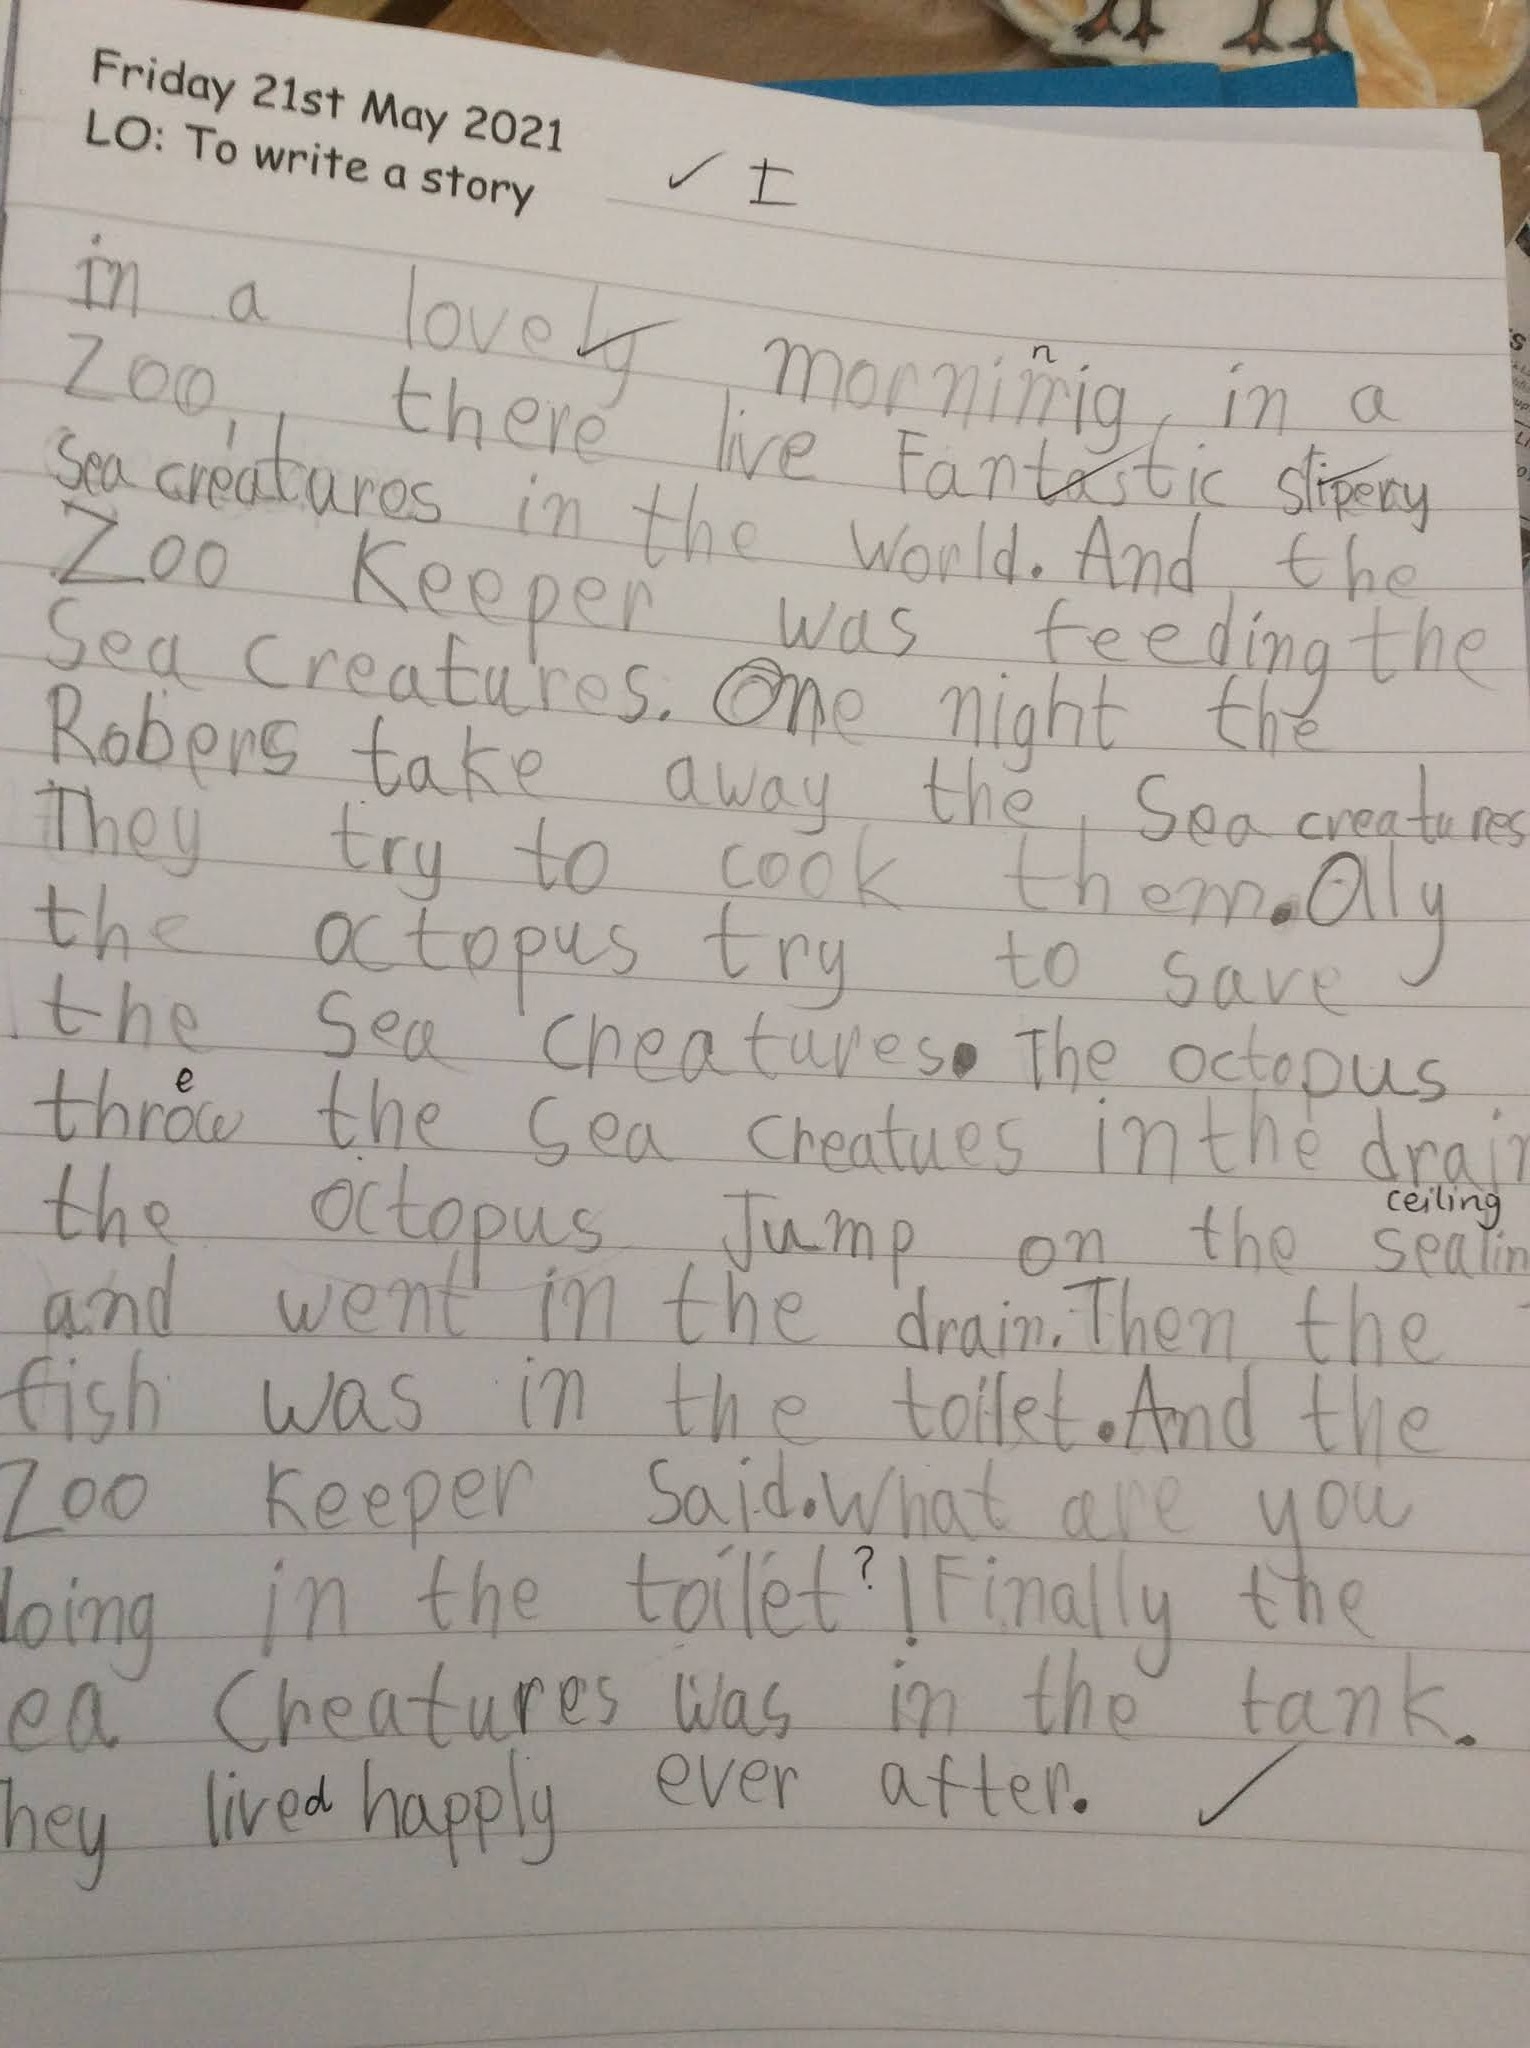 Friday 21st May 2021
LO: To write a story ✓ I
in a lovely morning, in a
Zoo, there live Fantastic slipery
Sea creatures in the world. And the
Zoo Keeper was feeding the
Sea creatures. One night the
Robers take away the Sea creatures
They try to cook them. Olly
the octopus try to save
the Sea creatures. The octopus
e
throw the Sea creatues in the drain
the octopus Jump on the sealin
ceiling
and went in the drain. Then the
fish was in the toilet. And the
Zoo Keeper Said. What are you
doing in the toilet?! Finally the
ea Creatures was in the tank.
hey lived happly ever after.